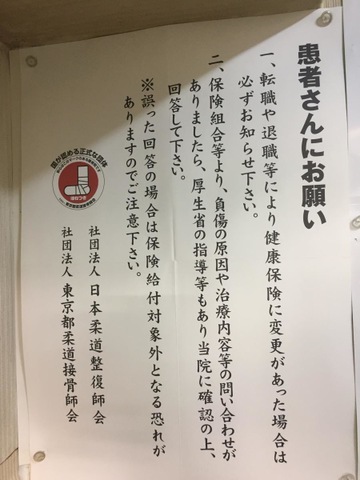 患者さんにお願い
一、転職や退職等により健康保険に変更があった場合は
必ずお知らせ下さい。
二、保険組合等より、負傷の原因や治療内容等の問い合わせが
ありましたら、厚生省の指導等もあり当院に確認の上、
回答して下さい。
※誤った回答の場合は保険給付対象外となる恐れが
ありますのでご注意下さい。
国が認める正式な団体
社団法人 日本柔道整復師会
社団法人 東京都柔道接骨師会